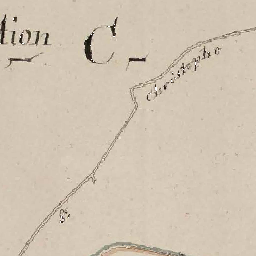 tion C
Christophe